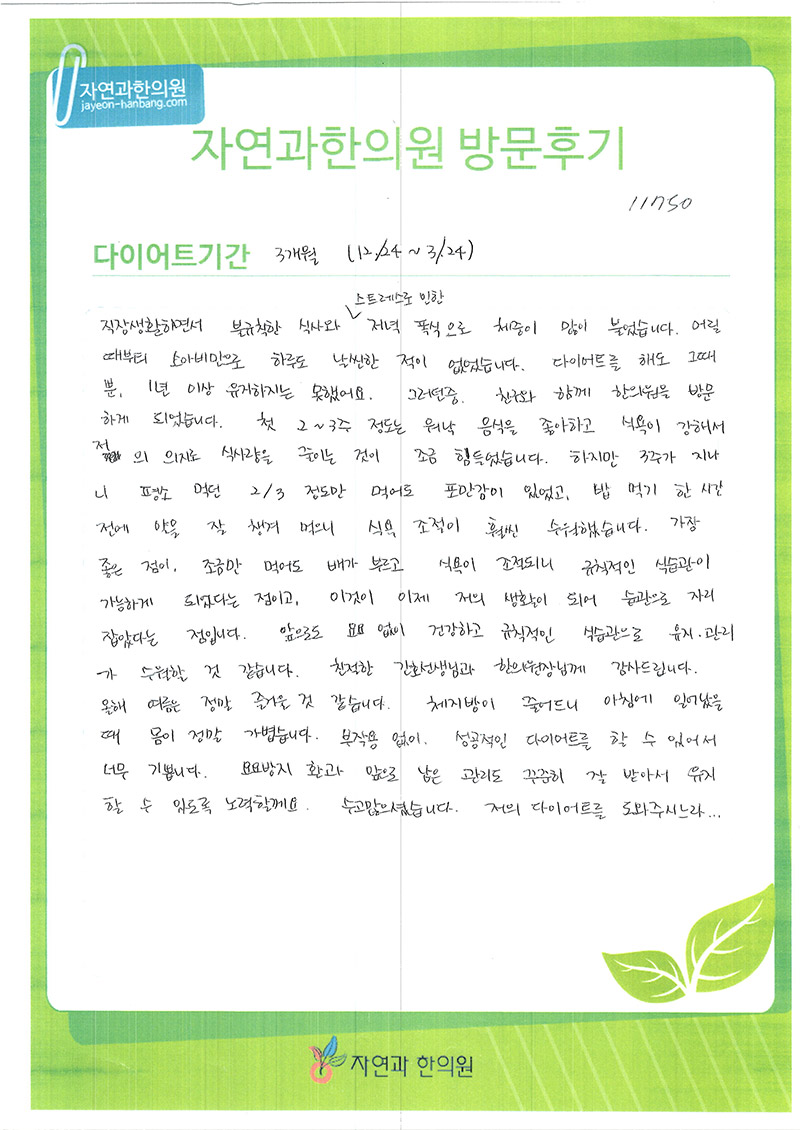 자연과한의원
jayeon-hanbang.com
자연과한의원 방문후기
11750
다이어트기간 3개월 (12/24 ~ 3/24)
스트레스로 인한
직장생활하면서 불규칙한 식사와 저녁 폭식으로 체중이 많이 불었습니다. 어릴
때부터 소아비만으로 하루도 날씬한 적이 없었습니다. 다이어트를 해도 그때
뿐, 1년 이상 유지하지는 못했어요. 그러던중, 친구와 함께 한의원을 방문
하게 되었습니다. 첫 2~3주 정도는 워낙 음식을 좋아하고 식욕이 강해서
저의 의지로 식사량을 줄이는 것이 조금 힘들었습니다. 하지만 3주가 지나
니 평소 먹던 2/3 정도만 먹어도 포만감이 있었고, 밥 먹기 한 시간
전에 약을 잘 챙겨 먹으니 식욕 조절이 훨씬 수월했습니다. 가장
좋은 점이, 조금만 먹어도 배가 부르고 식욕이 조절되니 규칙적인 식습관이
가능하게 되었다는 점이고, 이것이 이제 저의 생활이 되어 습관으로 자리
잡았다는 점입니다. 앞으로도 요요 없이 건강하고 규칙적인 식습관으로 유지·관리
가 수월할 것 같습니다. 친절한 간호선생님과 한의원장님께 감사드립니다.
올해 여름은 정말 즐거울 것 같습니다. 체지방이 줄어드니 아침에 일어났을
때 몸이 정말 가볍습니다. 부작용 없이, 성공적인 다이어트를 할 수 있어서
너무 기쁩니다. 요요방지 환과 앞으로 남은 관리도 꾸준히 잘 받아서 유지
할 수 있도록 노력할께요. 수고많으셨습니다. 저의 다이어트를 도와주시느라...
자연과 한의원